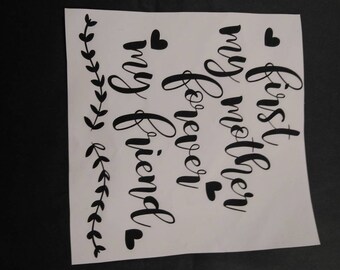 first
my mother
forever
my friend